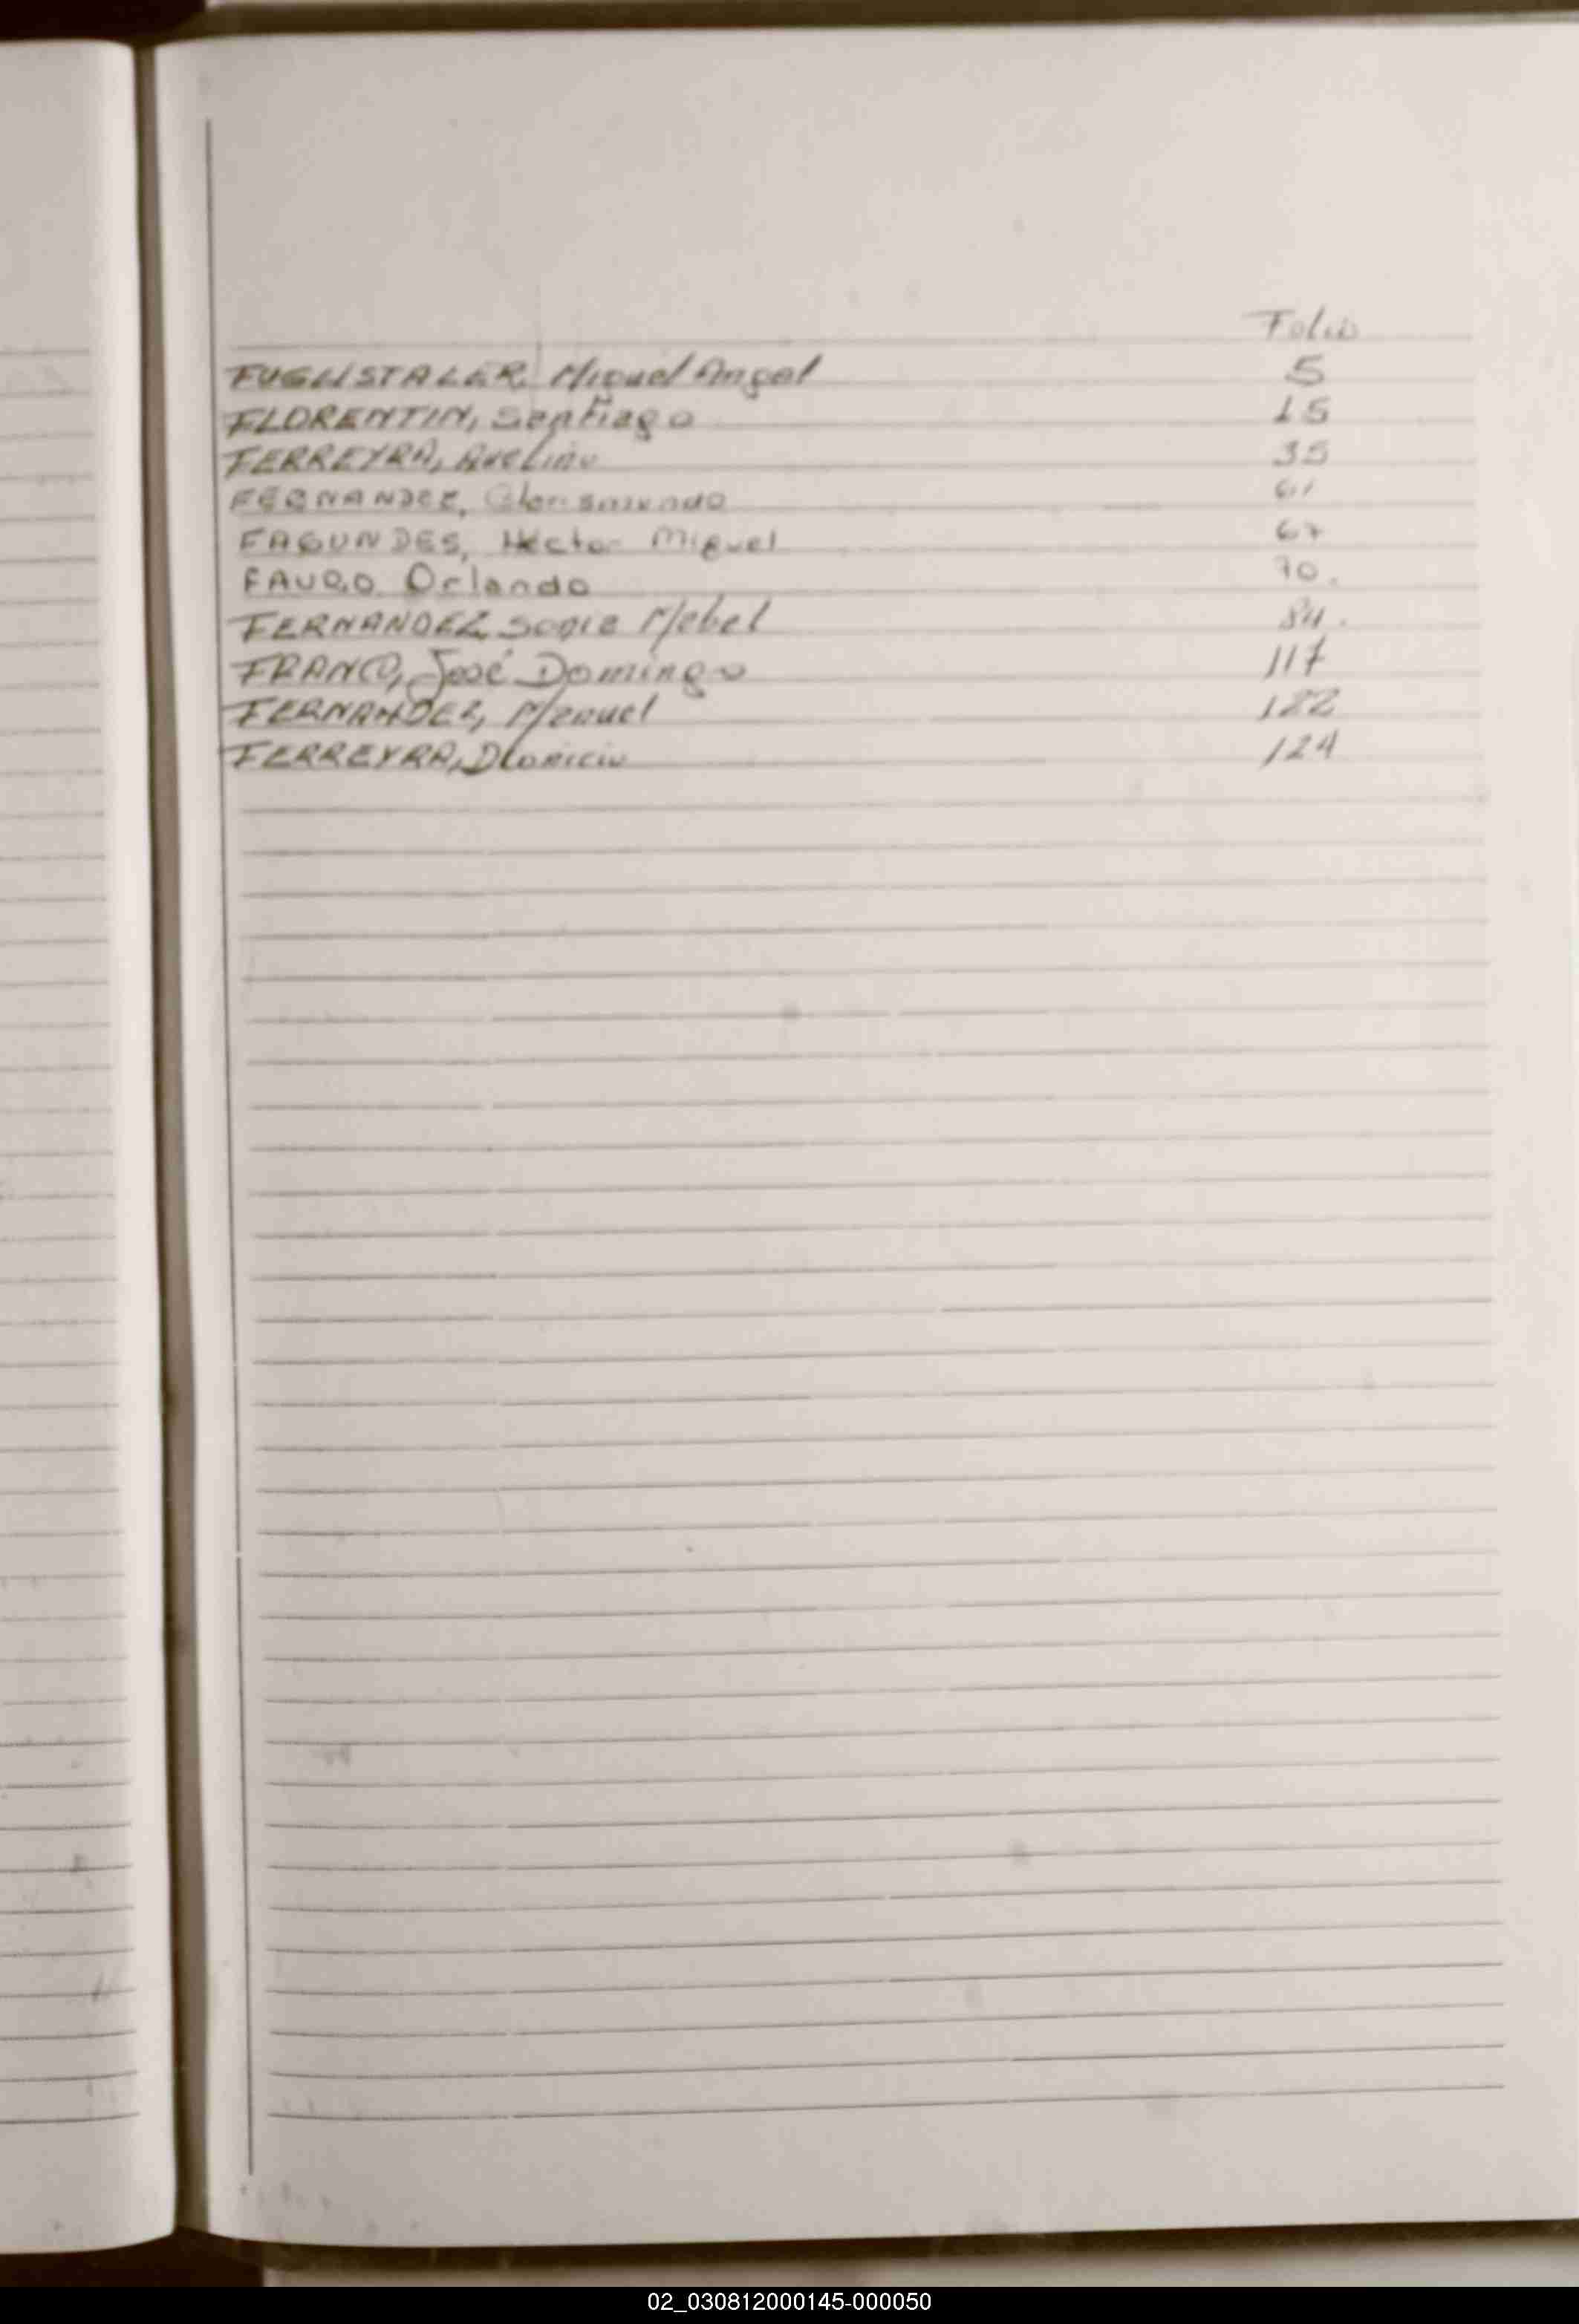 Folio
FUGLISTALER, Miguel Angel 5
FLORENTIN, Santiago 15
FERREYRA, Avelino 35
FERNANDEZ, 61
FAGUNDES, Héctor Miguel 67
FAURO, Orlando 70.
FERNANDEZ, Sonia Mabel 84.
FRANCO, José Domingo 117
FERNANDEZ, Manuel 122
FERREYRA, Dionicio 124
02_030812000145-000050